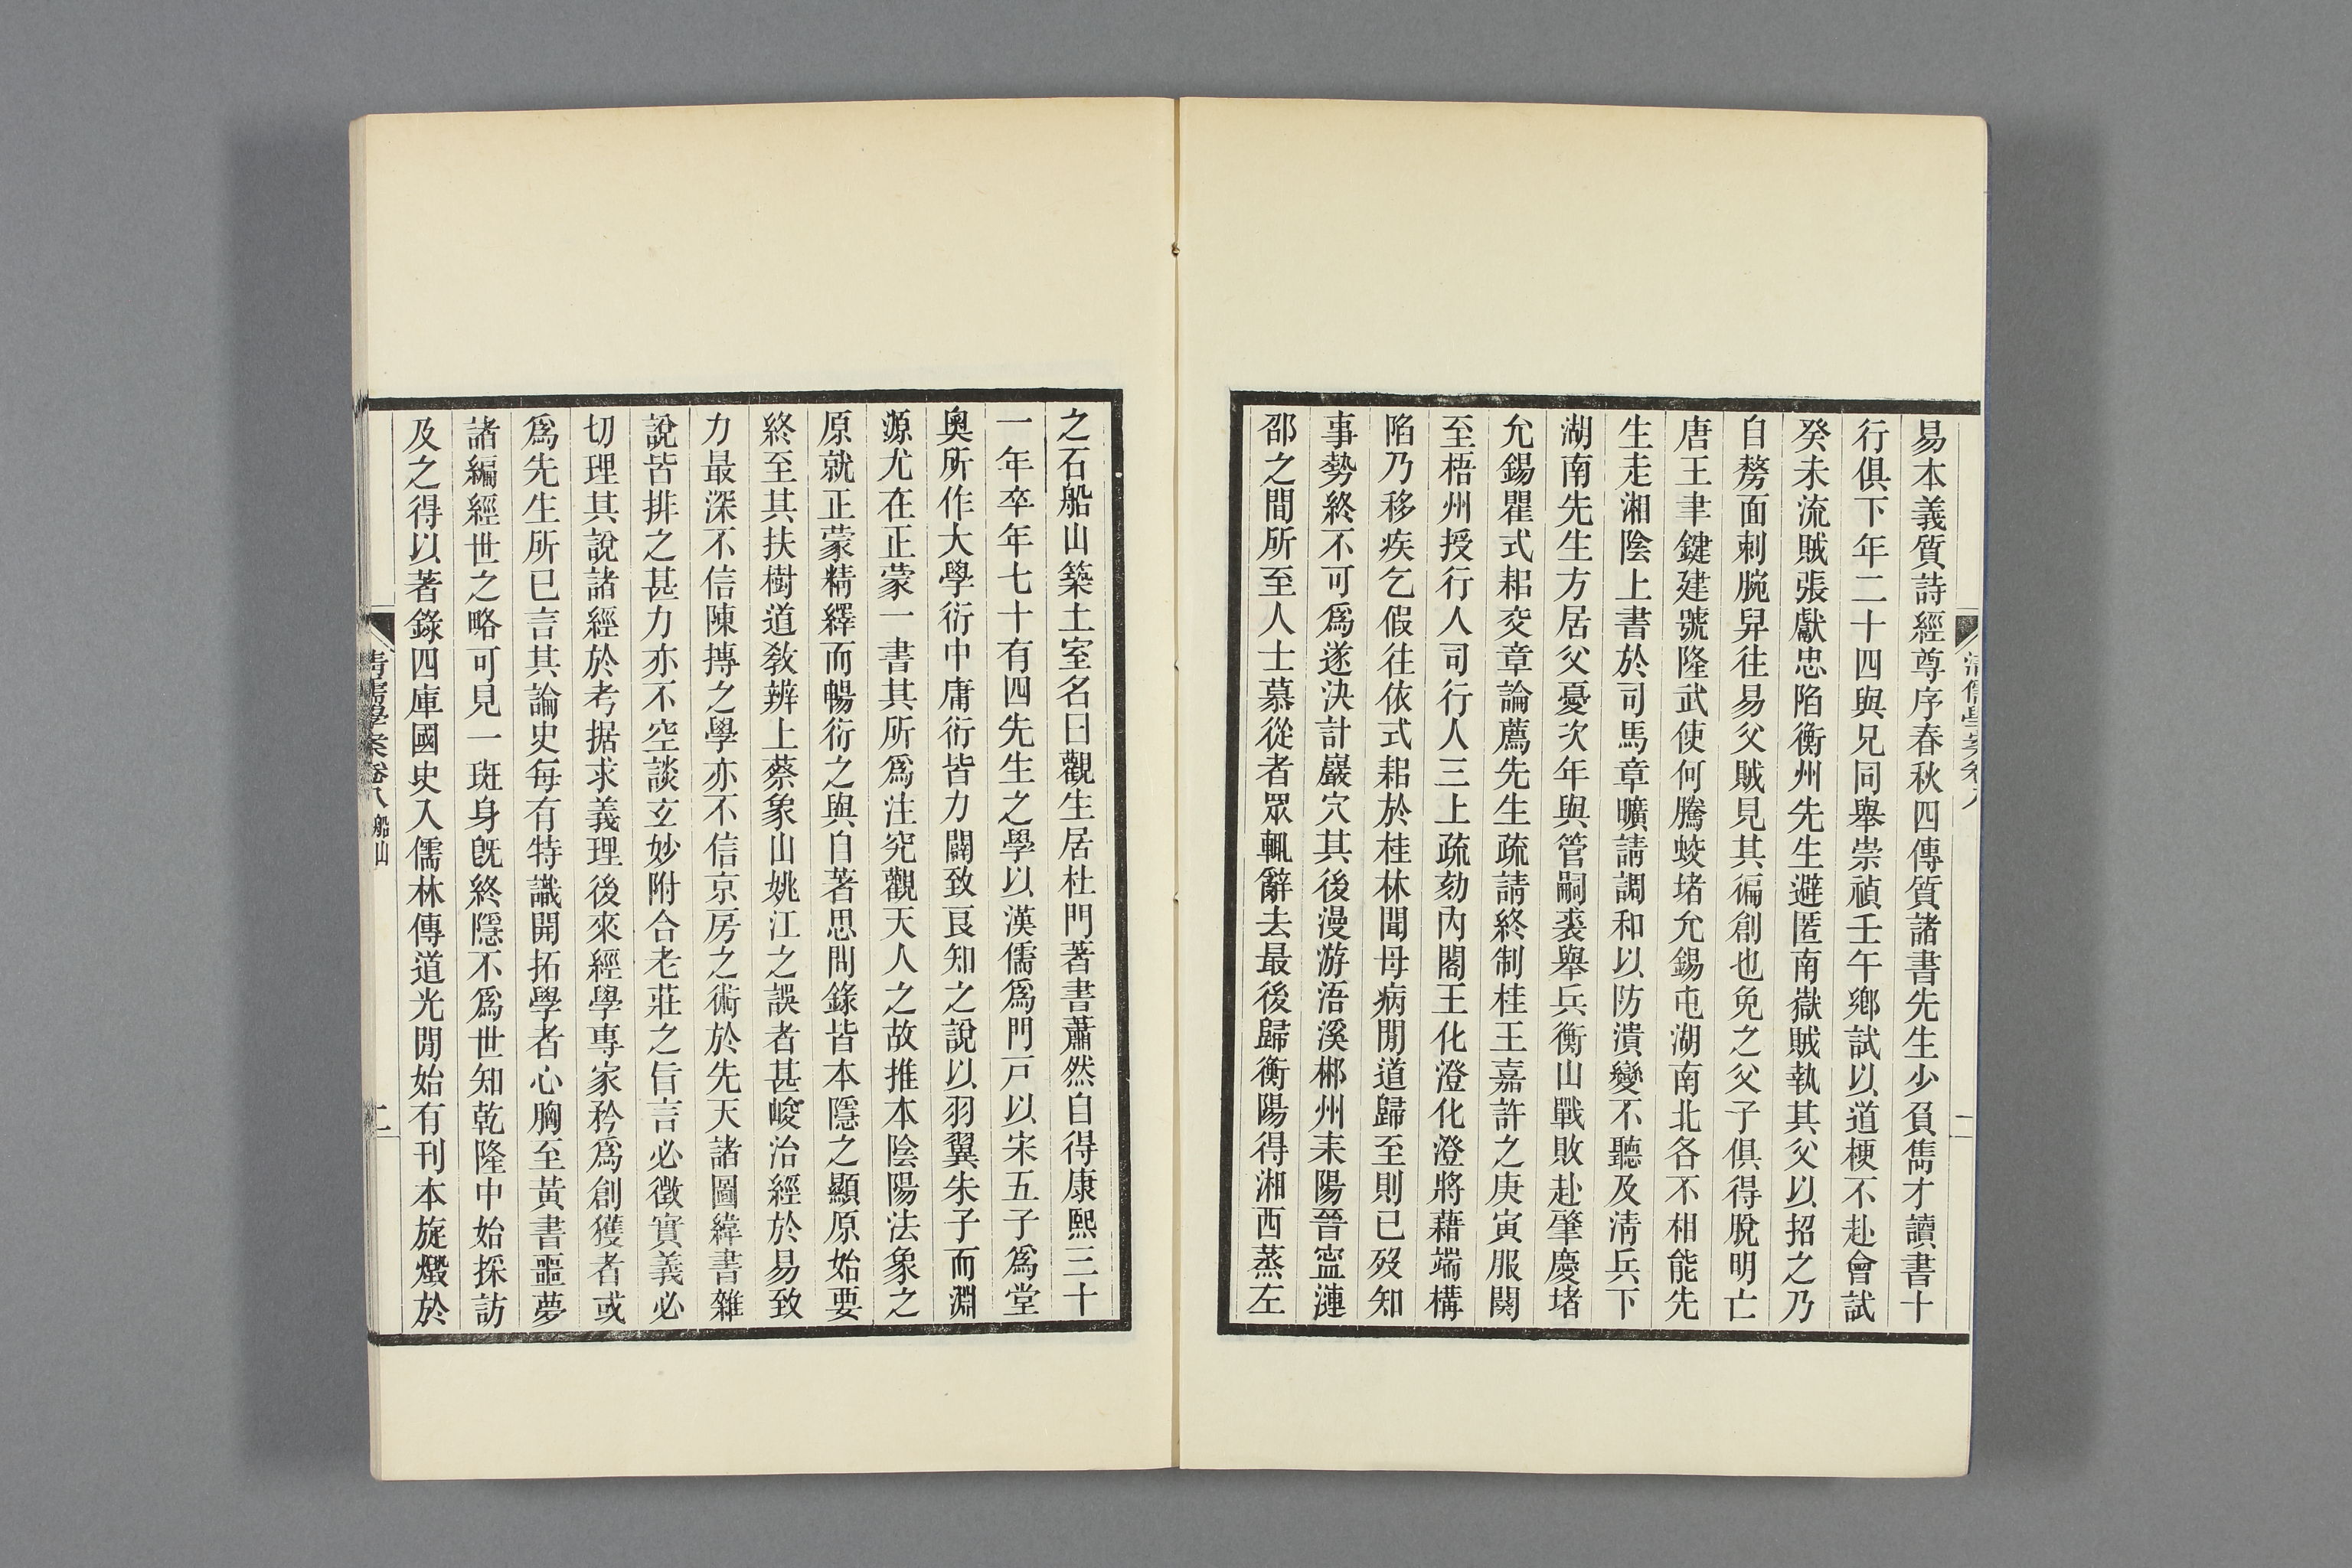 易本義質詩經尊序春秋四傳質諸書先生少負雋才讀書十
行俱下年二十四與兄同舉崇禎壬午鄉試以道梗不赴會試
癸未流賊張獻忠陷衡州先生避匿南嶽賊執其父以招之乃
自剺面刺腕舁往易父賊見其徧創也免之父子俱得脫明亡
唐王聿鍵建號隆武使何騰蛟堵允錫屯湖南北各不相能先
生走湘陰上書於司馬章曠請調和以防潰變不聽及淸兵下
湖南先生方居父憂次年與管嗣裘舉兵衡山戰敗赴肇慶堵
允錫瞿式耜交章論薦先生疏請終制桂王嘉許之庚寅服闋
至梧州授行人司行人三上疏劾內閣王化澄化澄將藉端構
陷乃移疾乞假往依式耜於桂林聞母病閒道歸至則已歿知
事勢終不可爲遂決計巖穴其後漫游浯溪郴州耒陽晉寍漣
邵之間所至人士慕從者眾輒辭去最後歸衡陽得湘西蒸左
之石船山築土室名曰觀生居杜門著書蕭然自得康熙三十
一年卒年七十有四先生之學以漢儒爲門戶以宋五子爲堂
奧所作大學衍中庸衍皆力闢致良知之說以羽翼朱子而淵
源尤在正蒙一書其所爲注究觀天人之故推本陰陽法象之
原就正蒙精繹而暢衍之與自著思問錄皆本隱之顯原始要
終至其扶樹道敎辨上蔡象山姚江之誤者甚峻治經於易致
力最深不信陳摶之學亦不信京房之術於先天諸圖緯書雜
說皆排之甚力亦不空談玄妙附合老莊之旨言必徵實義必
切理其說諸經於考据求義理後來經學專家矜爲創獲者或
爲先生所已言其論史每有特識開拓學者心胸至黃書噩夢
諸編經世之略可見一斑身旣終隱不爲世知乾隆中始採訪
及之得以著錄四庫國史入儒林傳道光閒始有刊本旋燬於
清儒學案卷八 船山
二